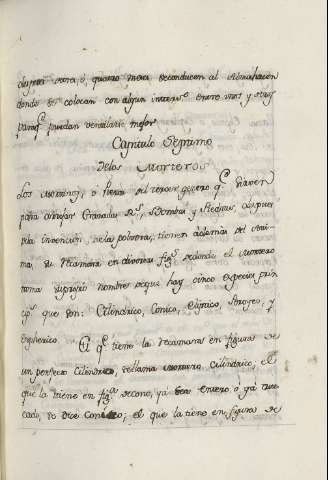 despues, tres, ó, quatro meses, se conducen al Almahacen
donde se colocan con algun interv.º entre unos y otros
para q.e puedan ventilarse mejor.
Capitulo Septimo
De los Morteros
Los Morteros, ó Piezas del tercer genero q.e sirven
para arrojar Granadas R.s, Bombas, y Piedras, despues
de la invencion de la polvora, tienen ademas del Ani-
ma, su Recamara en diversas fig.s segun el mortero
toma su propio nombre de que hay cinco especies prin
cip.s que son: Cilindrico, Conico, Eliptico, Parab.º, y
Espherico. El q.e tiene la recamara en figura de
un perfecto Cilindro, se llama mortero cilindrico, el
que la tiene en fig.a de cono, yá sea entero ó yá trun
cado, se dice Conico; el que la tiene en figura de